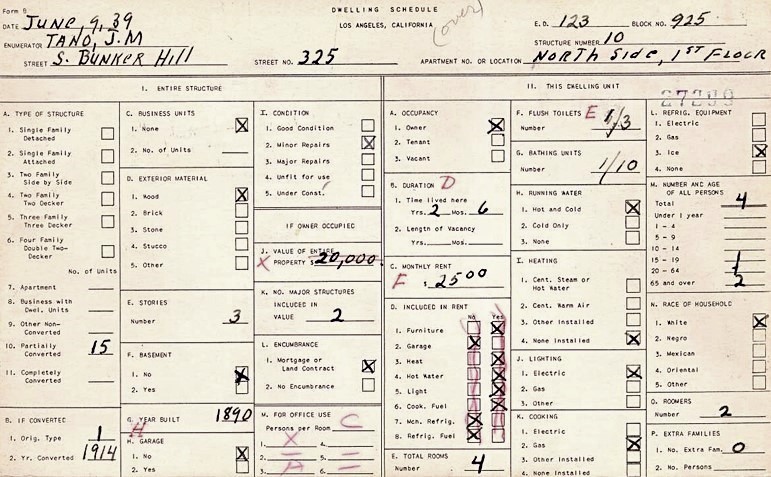 Form B
DWELLING SCHEDULE
LOS ANGELES, CALIFORNIA
(over)
DATE JUNE, 9, 39
ENUMERATOR TANO, J.M
STREET S. BUNKER Hill
STREET NO. 325
E.D. 123 BLOCK NO. 925
STRUCTURE NUMBER 10
APARTMENT NO. OR LOCATION NORTH Side, 1ST FLOOR
I. ENTIRE STRUCTURE
A. TYPE OF STRUCTURE
1. Single Family Detached
2. Single Family Attached
3. Two Family Side by Side
4. Two Family Two Decker
5. Three Family Three Decker
6. Four Family Double Two-Decker
No. of Units
7. Apartment
8. Business with Dwel. Units
9. Other Non-Converted
10. Partially Converted 15
11. Completely Converted
B. IF CONVERTED
1. Orig. Type 1
2. Yr. Converted 1914
C. BUSINESS UNITS
1. None X
2. No. of Units
D. EXTERIOR MATERIAL
1. Wood X
2. Brick
3. Stone
4. Stucco
5. Other
E. STORIES
Number 3
F. BASEMENT
1. No X
2. Yes
G. YEAR BUILT 1890
H
H. GARAGE
1. No X
2. Yes
I. CONDITION
1. Good Condition
2. Minor Repairs X
3. Major Repairs
4. Unfit for use
5. Under Const.
IF OWNER OCCUPIED
J. VALUE OF ENTIRE
X PROPERTY $ 20,000.
K. NO. MAJOR STRUCTURES INCLUDED IN
VALUE 2
L. ENCUMBRANCE
1. Mortgage or Land Contract X
2. No Encumbrance
M. FOR OFFICE USE
Persons per Room C
1. X 4.
2. 5.
3. A 6.
II. THIS DWELLING UNIT
27299
A. OCCUPANCY
1. Owner X
2. Tenant
3. Vacant
B. DURATION D
1. Time lived here
Yrs. 2 Mos. 6
2. Length of Vacancy
Yrs. Mos.
C. MONTHLY RENT
F $ 25 00
D. INCLUDED IN RENT
No Yes
1. Furniture X
2. Garage X
3. Heat X
4. Hot Water X
5. Light X
6. Cook. Fuel X
7. Mcn. Refrig. X
8. Refrig. Fuel X
E. TOTAL ROOMS
Number 4
F. FLUSH TOILETS E
Number 1/3
G. BATHING UNITS
Number 1/10
H. RUNNING WATER
1. Hot and Cold X
2. Cold Only
3. None
I. HEATING
1. Cent. Steam or Hot Water
2. Cent. Warm Air
3. Other Installed
4. None Installed X
J. LIGHTING
1. Electric X
2. Gas
3. Other
K. COOKING
1. Electric
2. Gas X
3. Other Installed
4. None Installed
L. REFRIG. EQUIPMENT
1. Electric
2. Gas
3. Ice X
4. None
M. NUMBER AND AGE OF ALL PERSONS
Total 4
Under 1 year
1 - 4
5 - 9
10 - 14
15 - 19 1
20 - 64 1
65 and over 2
N. RACE OF HOUSEHOLD
1. White X
2. Negro
3. Mexican
4. Oriental
5. Other
O. ROOMERS
Number 2
P. EXTRA FAMILIES
1. No. Extra Fam. 0
2. No. Persons